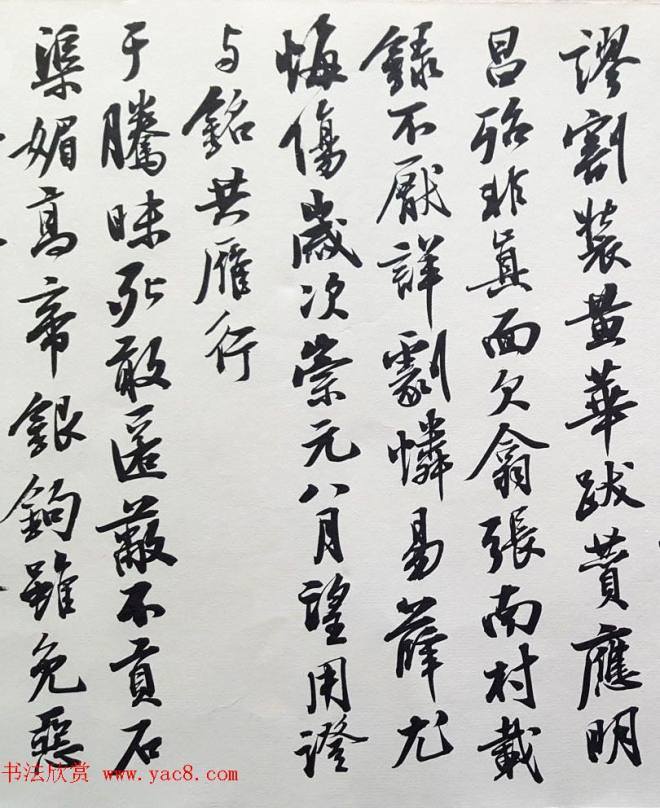 謬割裝景華跋賛應明
昌殆非真面欠翕張南村載
錄不厭詳劙憐易薛尤
悔傷歲次崇元八月望用證
与銘共雁行
于騰昧死敢匿蔽不貢石
渠媚高帝銀鉤雖免惡
书法欣赏 www.yac8.com